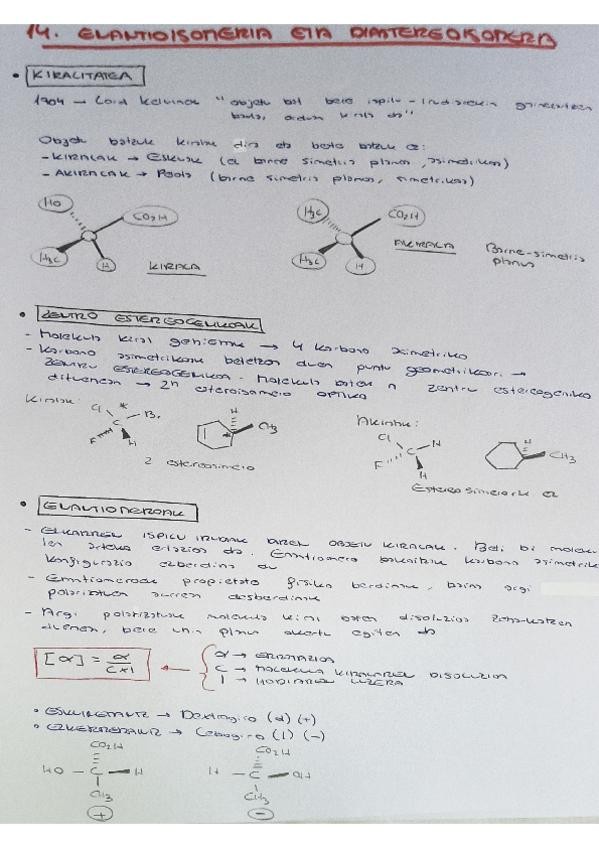 14. ENANTIOISOMERIA ETA DIASTEREOISOMERIA
• KIRALITATEA
1904 → Lord Kelvinek "objetu bat bere ispilu-irudiarekin
bada, orduan kirala da"
Objetu batzuk kiralak dira eta beste batzuk ez:
- KIRALAK → Eskuak (ez barne simetria planoa, asimetrikoa)
- AKIRALAK → Pilota (barne simetria planoa, simetrikoa)
HO CO2H H3C H KIRALA
H3C CO2H H3C H AKIRALA Barne-simetria
planoa
• ZENTRO ESTEREOGENIKOAK
- Molekula kiral gehienak → 4 karbono asimetriko
- Karbono asimetrikoak betetzen duen puntu geometrikoari →
ZENTRO ESTEREOGENIKOA. Molekula batek n zentru estereogeniko
dituenean → 2ⁿ estereoisomero optiko
Kiralak: Cl * Br C F H H CH3
Akiralak: Cl H C F H H CH3
2 estereoisomero
Estereoisomerorik ez
• ENANTIOMEROAK
- ELKARREN ISPILU IRUDIAK DIREN OBJETU KIRALAK. Beti bi moleku-
len arteko erlazioa da. Enantiomero bakoitzak karbono asimetriko
konfigurazio ezberdina du
- Enantiomeroek propietate fisiko berdinak, baina argi
polarizatuan desberdinak
- Argi polarizatuak molekula kiral baten disoluzioa zeharkatzen
duenean, bere plano egiten da
[α] = α / C × l
α → ERROTAZIOA
C → MOLEKULA KIRALAREN DISOLUZIOA
l → HODIAREN LUZERA
• ESKUINETARANTZ → Dextrogiro (d) (+)
• EZKERRERANTZ → Levogiro (l) (-)
CO2H CO2H
HO - C - H H - C - OH
CH3 CH3
+ -